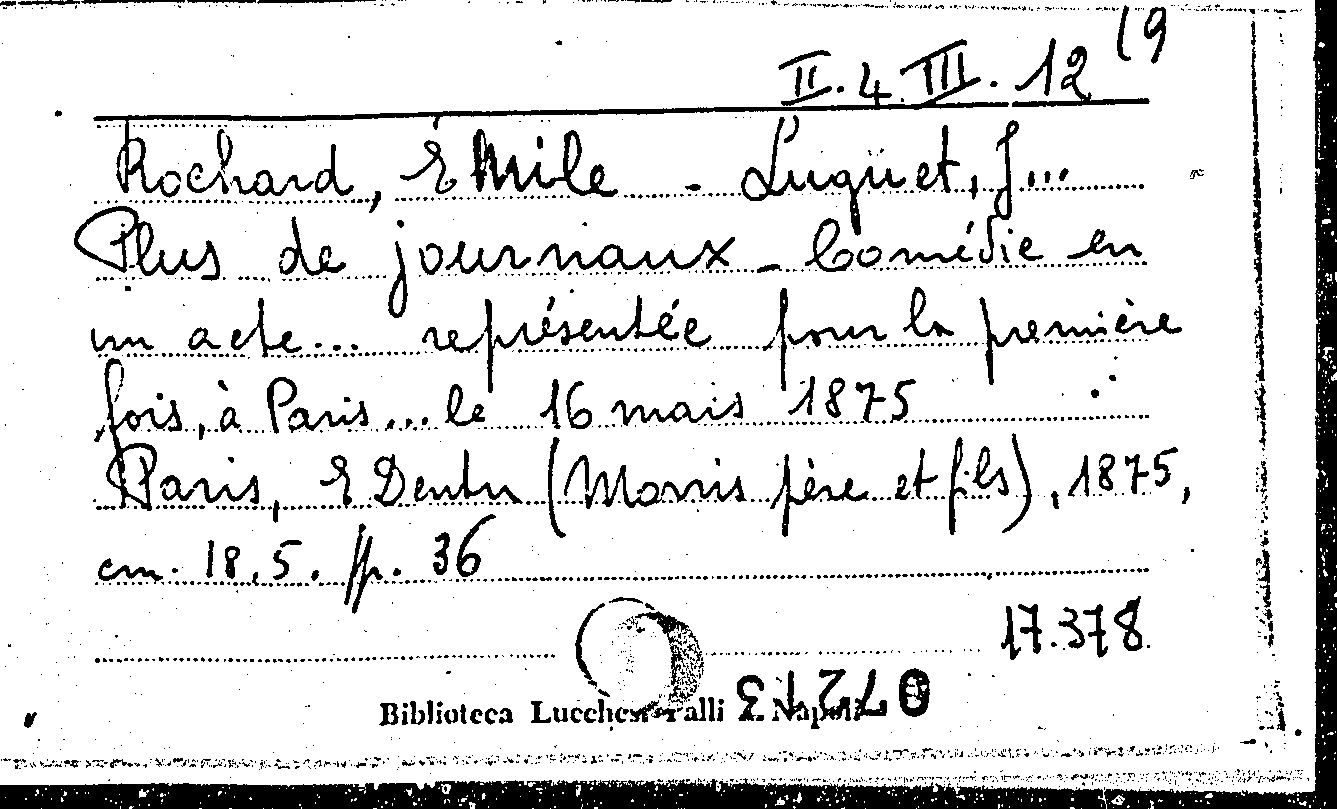 II.4.III.12 (9
Rochard, Émile - Luguet, J...
Plus de journaux - Comédie en
un acte... représentée pour la première
fois, à Paris... le 16 mais 1875
Paris, E Dentu (Morris père et fils), 1875,
cm. 18,5. pp. 36
17.378
Biblioteca Lucchesi-Palli - Napoli